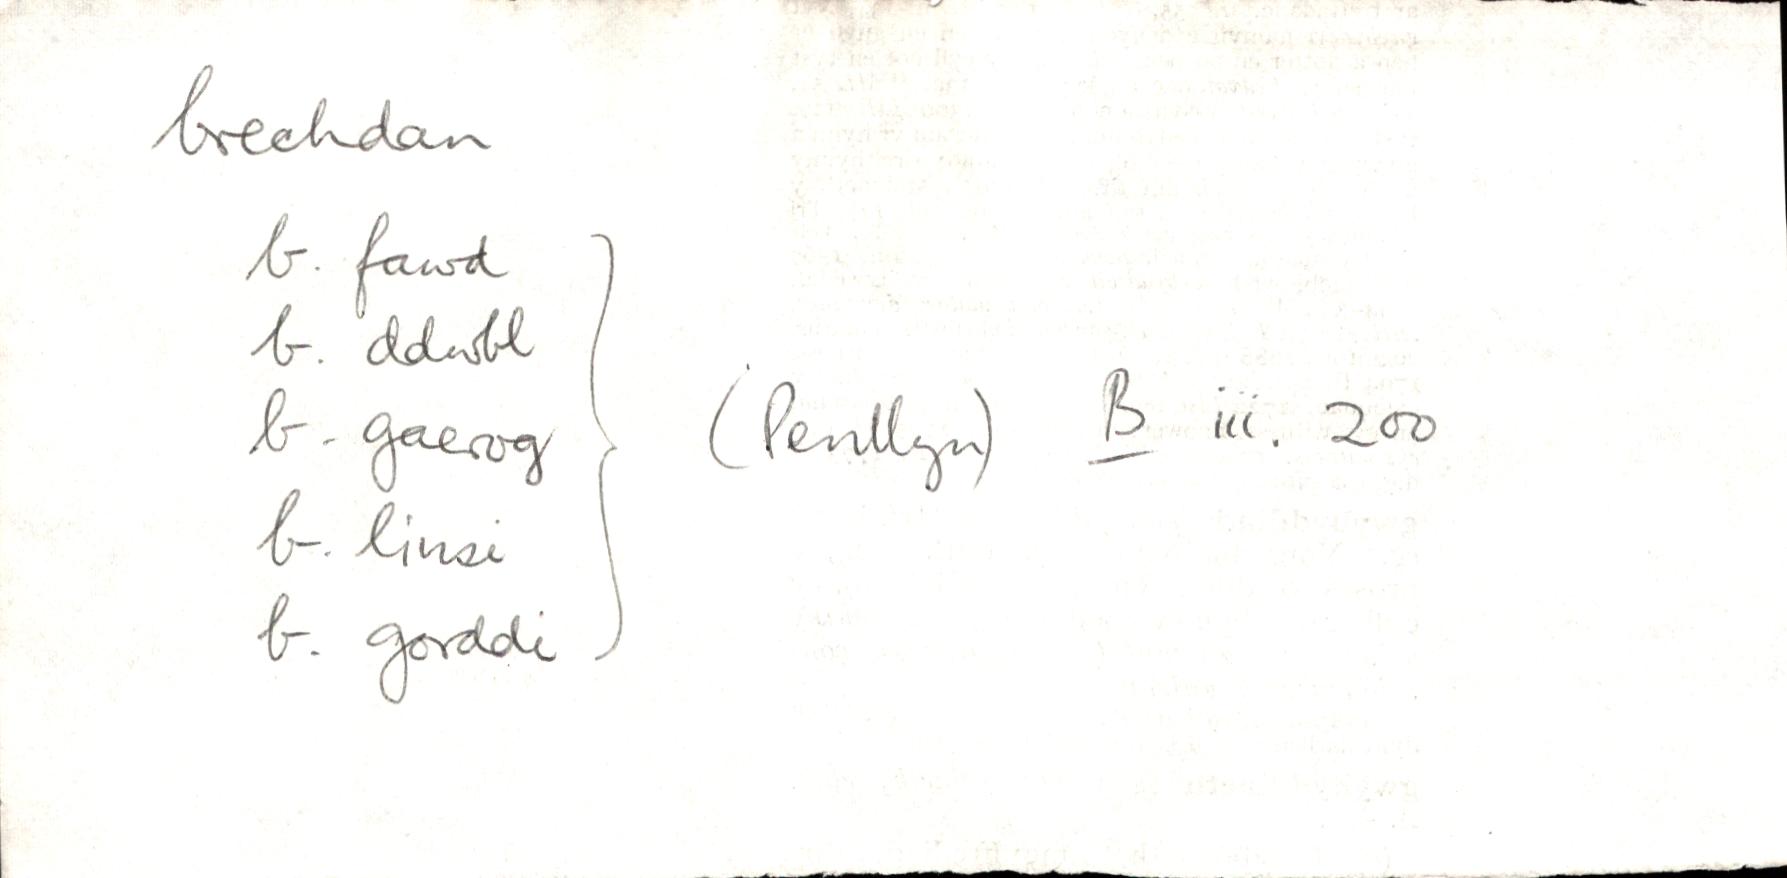 brechdan
b. fawd
b. ddwbl
b. gaerog
b. linsi
b. gorddi
(Penllyn) B iii. 200